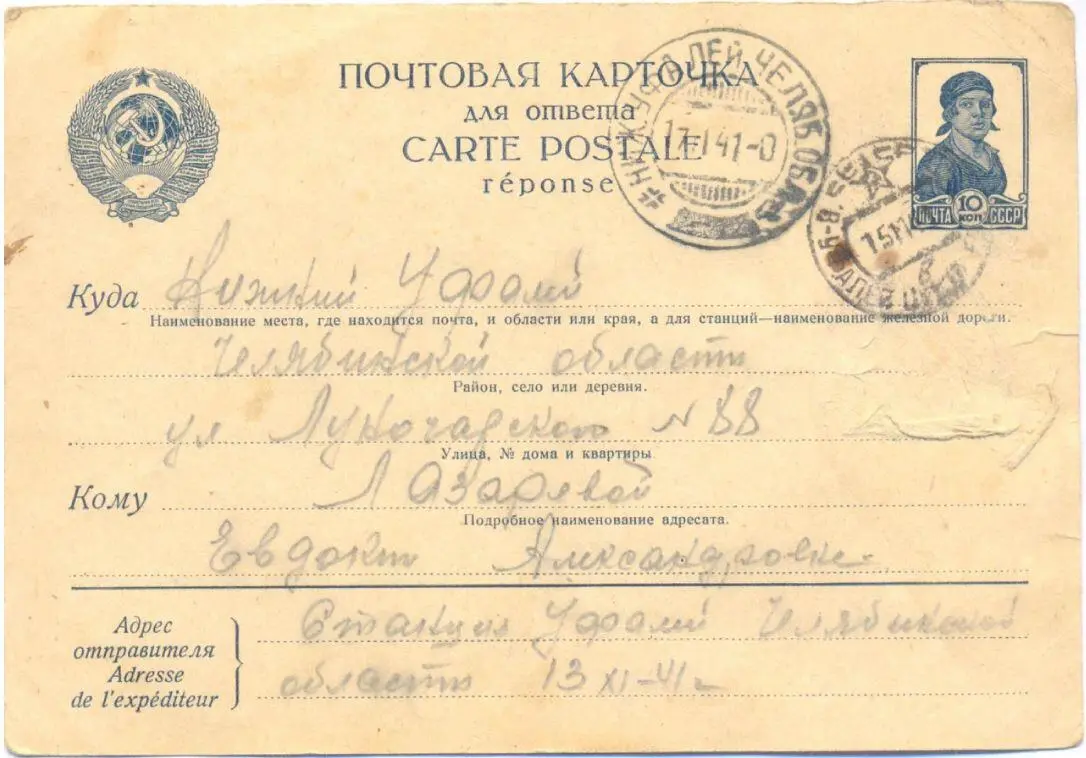 ПОЧТОВАЯ КАРТОЧКА
для ответа
CARTE POSTALE
réponse
НИЖ. УФАЛЕЙ ЧЕЛЯБ. ОБЛ.
41-0
10 КОП.
ПОЧТА СССР
Куда Нижний Уфалей
Наименование места, где находится почта, и области или края, а для станций—наименование железной дороги.
Челябинской области
Район, село или деревня.
ул № 88
Улица, № дома и квартиры.
Кому Лазаревой
Подробное наименование адресата.
Александровне
Адрес отправителя
Adresse de l'expéditeur
Станция Уфалей Челябинской
области 13 XI-41 г